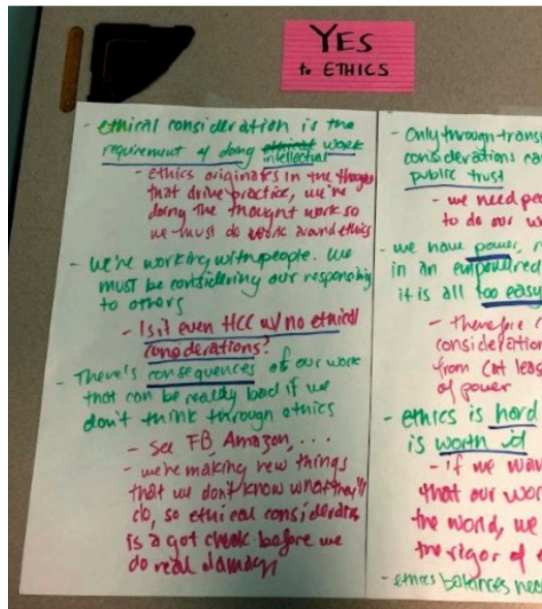 YES
to ETHICS
- ethical consideration is the
requirement of doing ethical work
intellectual
- ethics originates in the thoughts
that drive practice, we're
doing the thought work so
we must do work around ethics
- we're working with people. We
must be considering our responsibility
to others
- Is it even HCC w/ no ethical
considerations?
- There's consequences of our work
that can be really bad if we
don't think through ethics
- See FB, Amazon, ...
- we're making new things
that we don't know what they'll
do, so ethical consideration
is a gut check before we
do real damage
- Only through trans
considerations ca
public trust
- we need peo
to do our w
- we have power,
in an empowered
it is all too easy
- therefore
consideration
from (at leas
of power
- ethics is hard
is worth it
- if we wan
that our wor
the world, we
the rigor of
- ethics balances nee